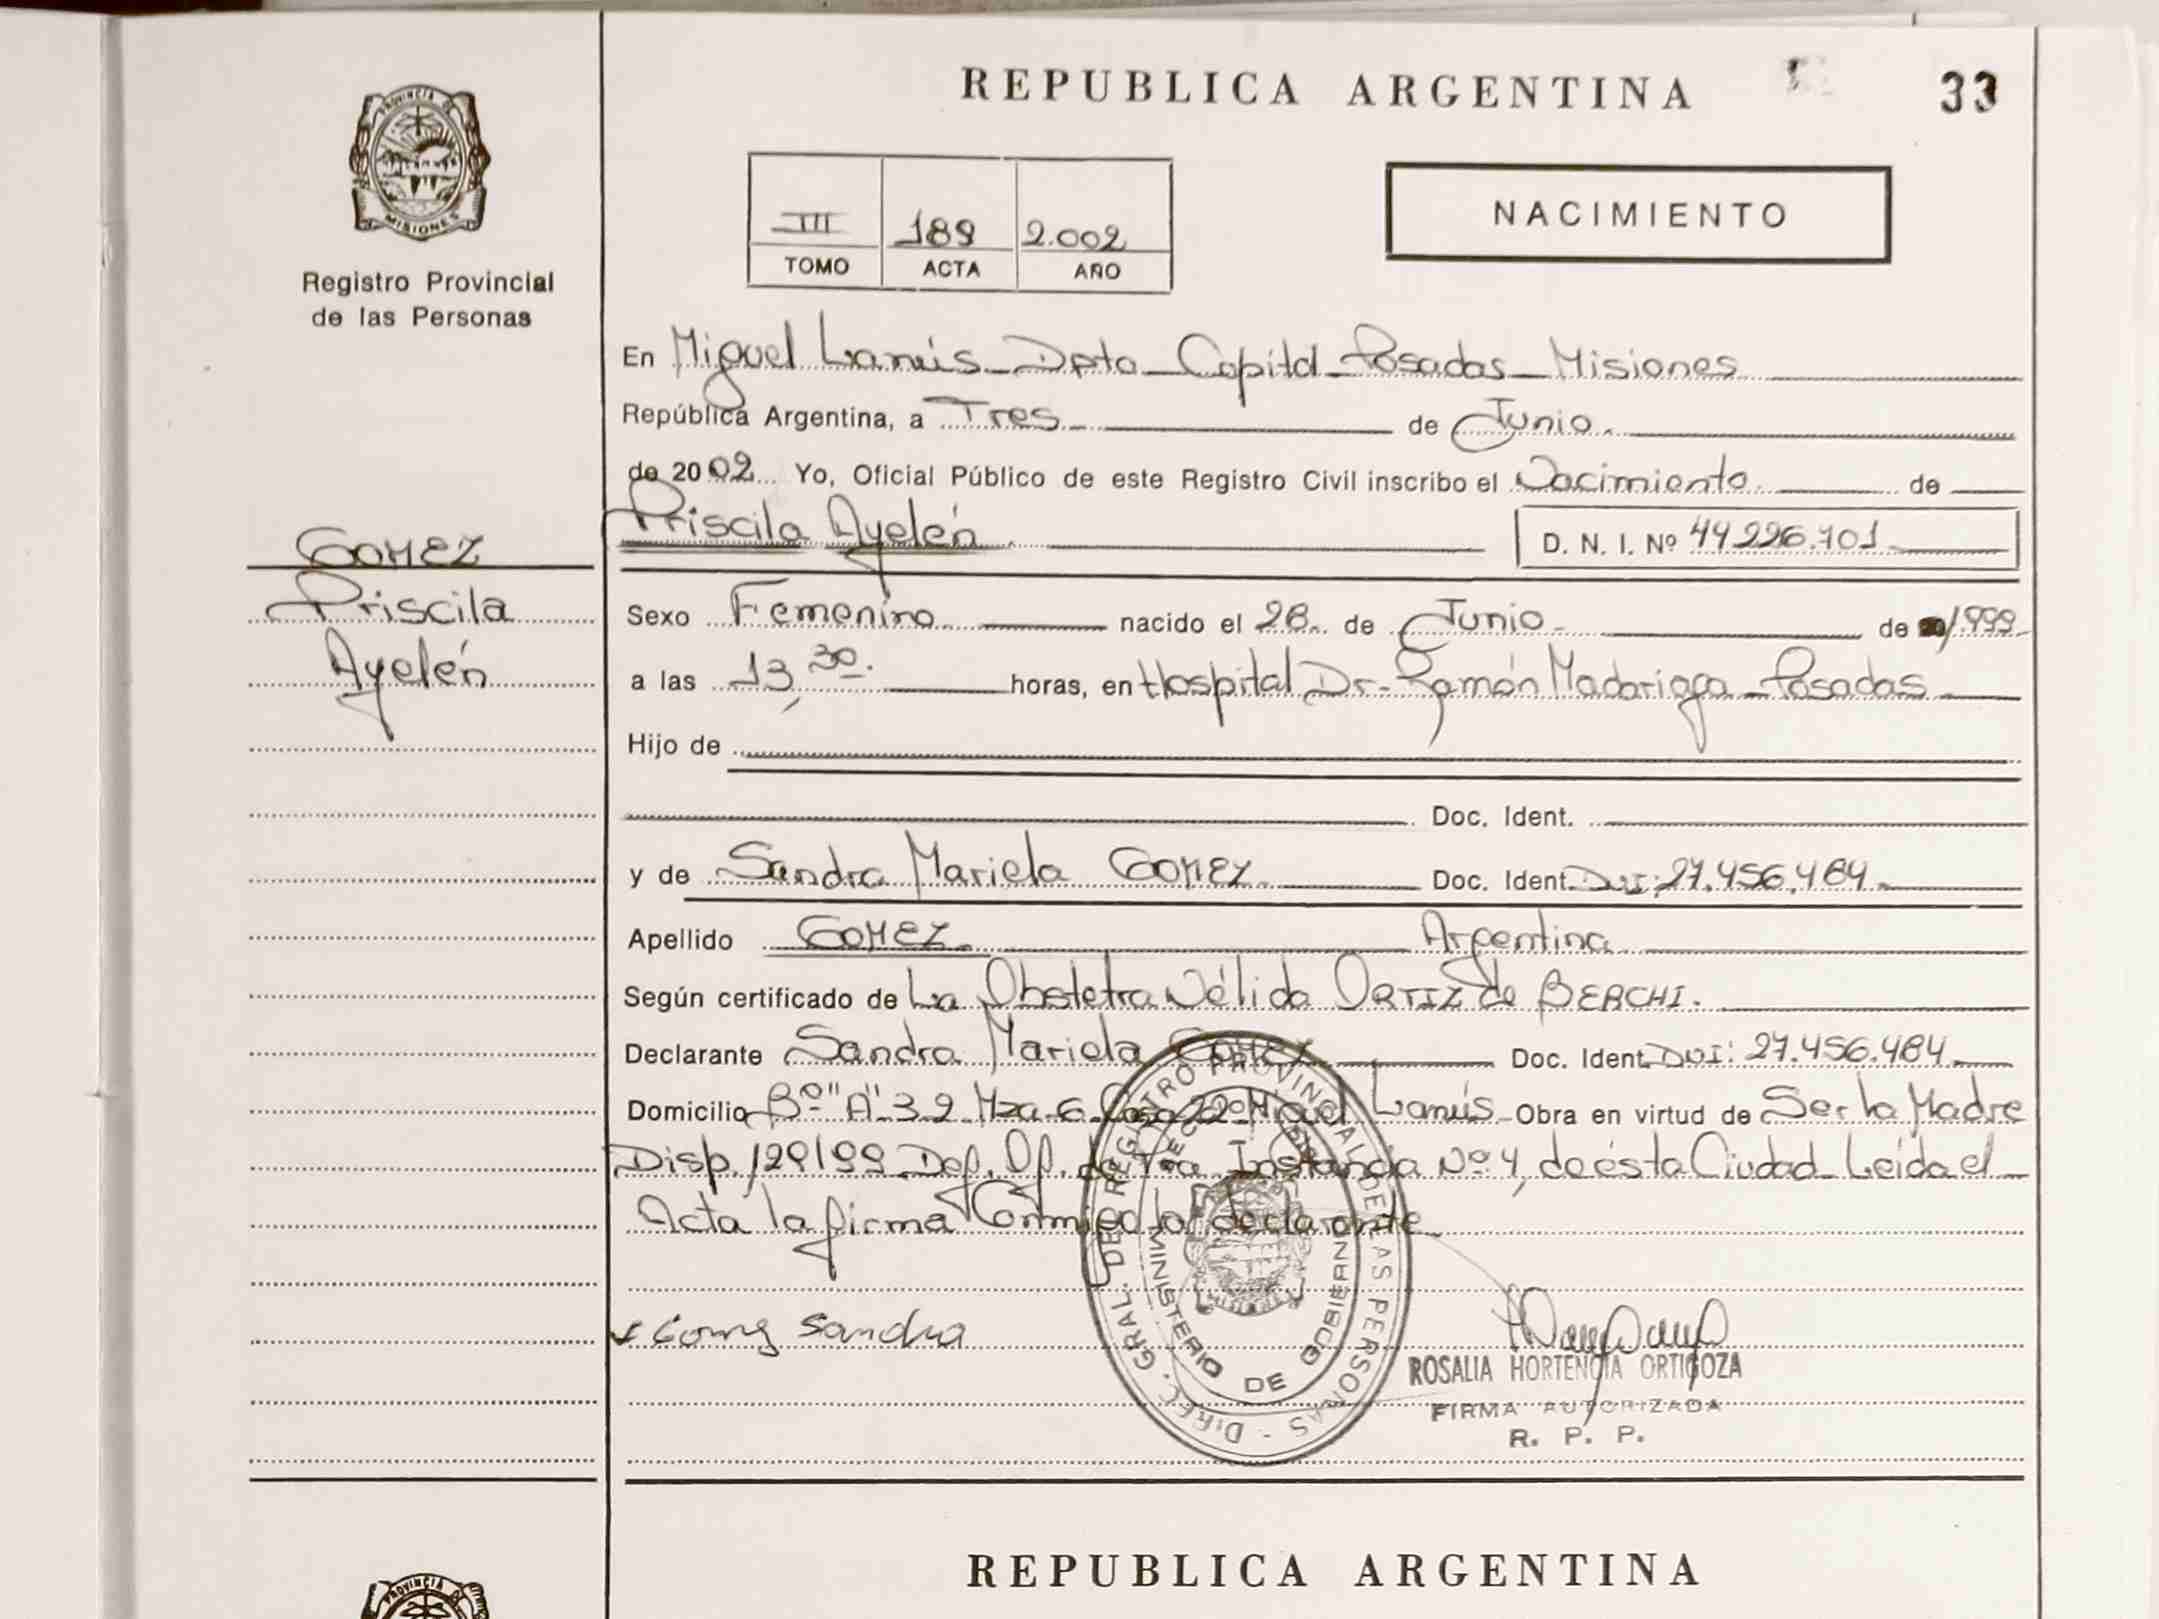 REPUBLICA ARGENTINA
33
PROVINCIA DE
MISIONES
Registro Provincial
de las Personas
III 189 2.002
TOMO ACTA AÑO
NACIMIENTO
En Miguel Lanús - Dpto - Capital - Posadas - Misiones
República Argentina, a Tres de Junio
de 2002 Yo, Oficial Público de este Registro Civil inscribo el Nacimiento de
Priscila Ayelén D. N. I. Nº 44226.701
GOMEZ
Priscila
Ayelén
Sexo Femenino nacido el 28 de Junio de 1999
a las 13,30 horas, en Hospital Dr. Ramón Madariaga - Posadas
Hijo de
Doc. Ident.
y de Sandra Mariela GOMEZ Doc. Ident. DNI: 27.456.484
Apellido GOMEZ Argentina
Según certificado de La Obstetra Nélida ORTIZ de BERCHI.
Declarante Sandra Mariela Gomez Doc. Ident. DNI: 27.456.484
Domicilio Bº "A" 3.2 Mza 6 Casa 22 Miguel Lanús Obra en virtud de Ser la Madre
Disp. 129/99 Def. Of. de 1ra Instancia Nº 4, de ésta Ciudad - Leída el
Acta la firma Conmigo la declarante
Gomez Sandra
DIREC. GRAL. DE REGISTRO PROVINCIAL DE LAS PERSONAS
MINISTERIO DE GOBIERNO
ROSALIA HORTENCIA ORTIGOZA
FIRMA AUTORIZADA
R. P. P.
REPUBLICA ARGENTINA
PROVINCIA